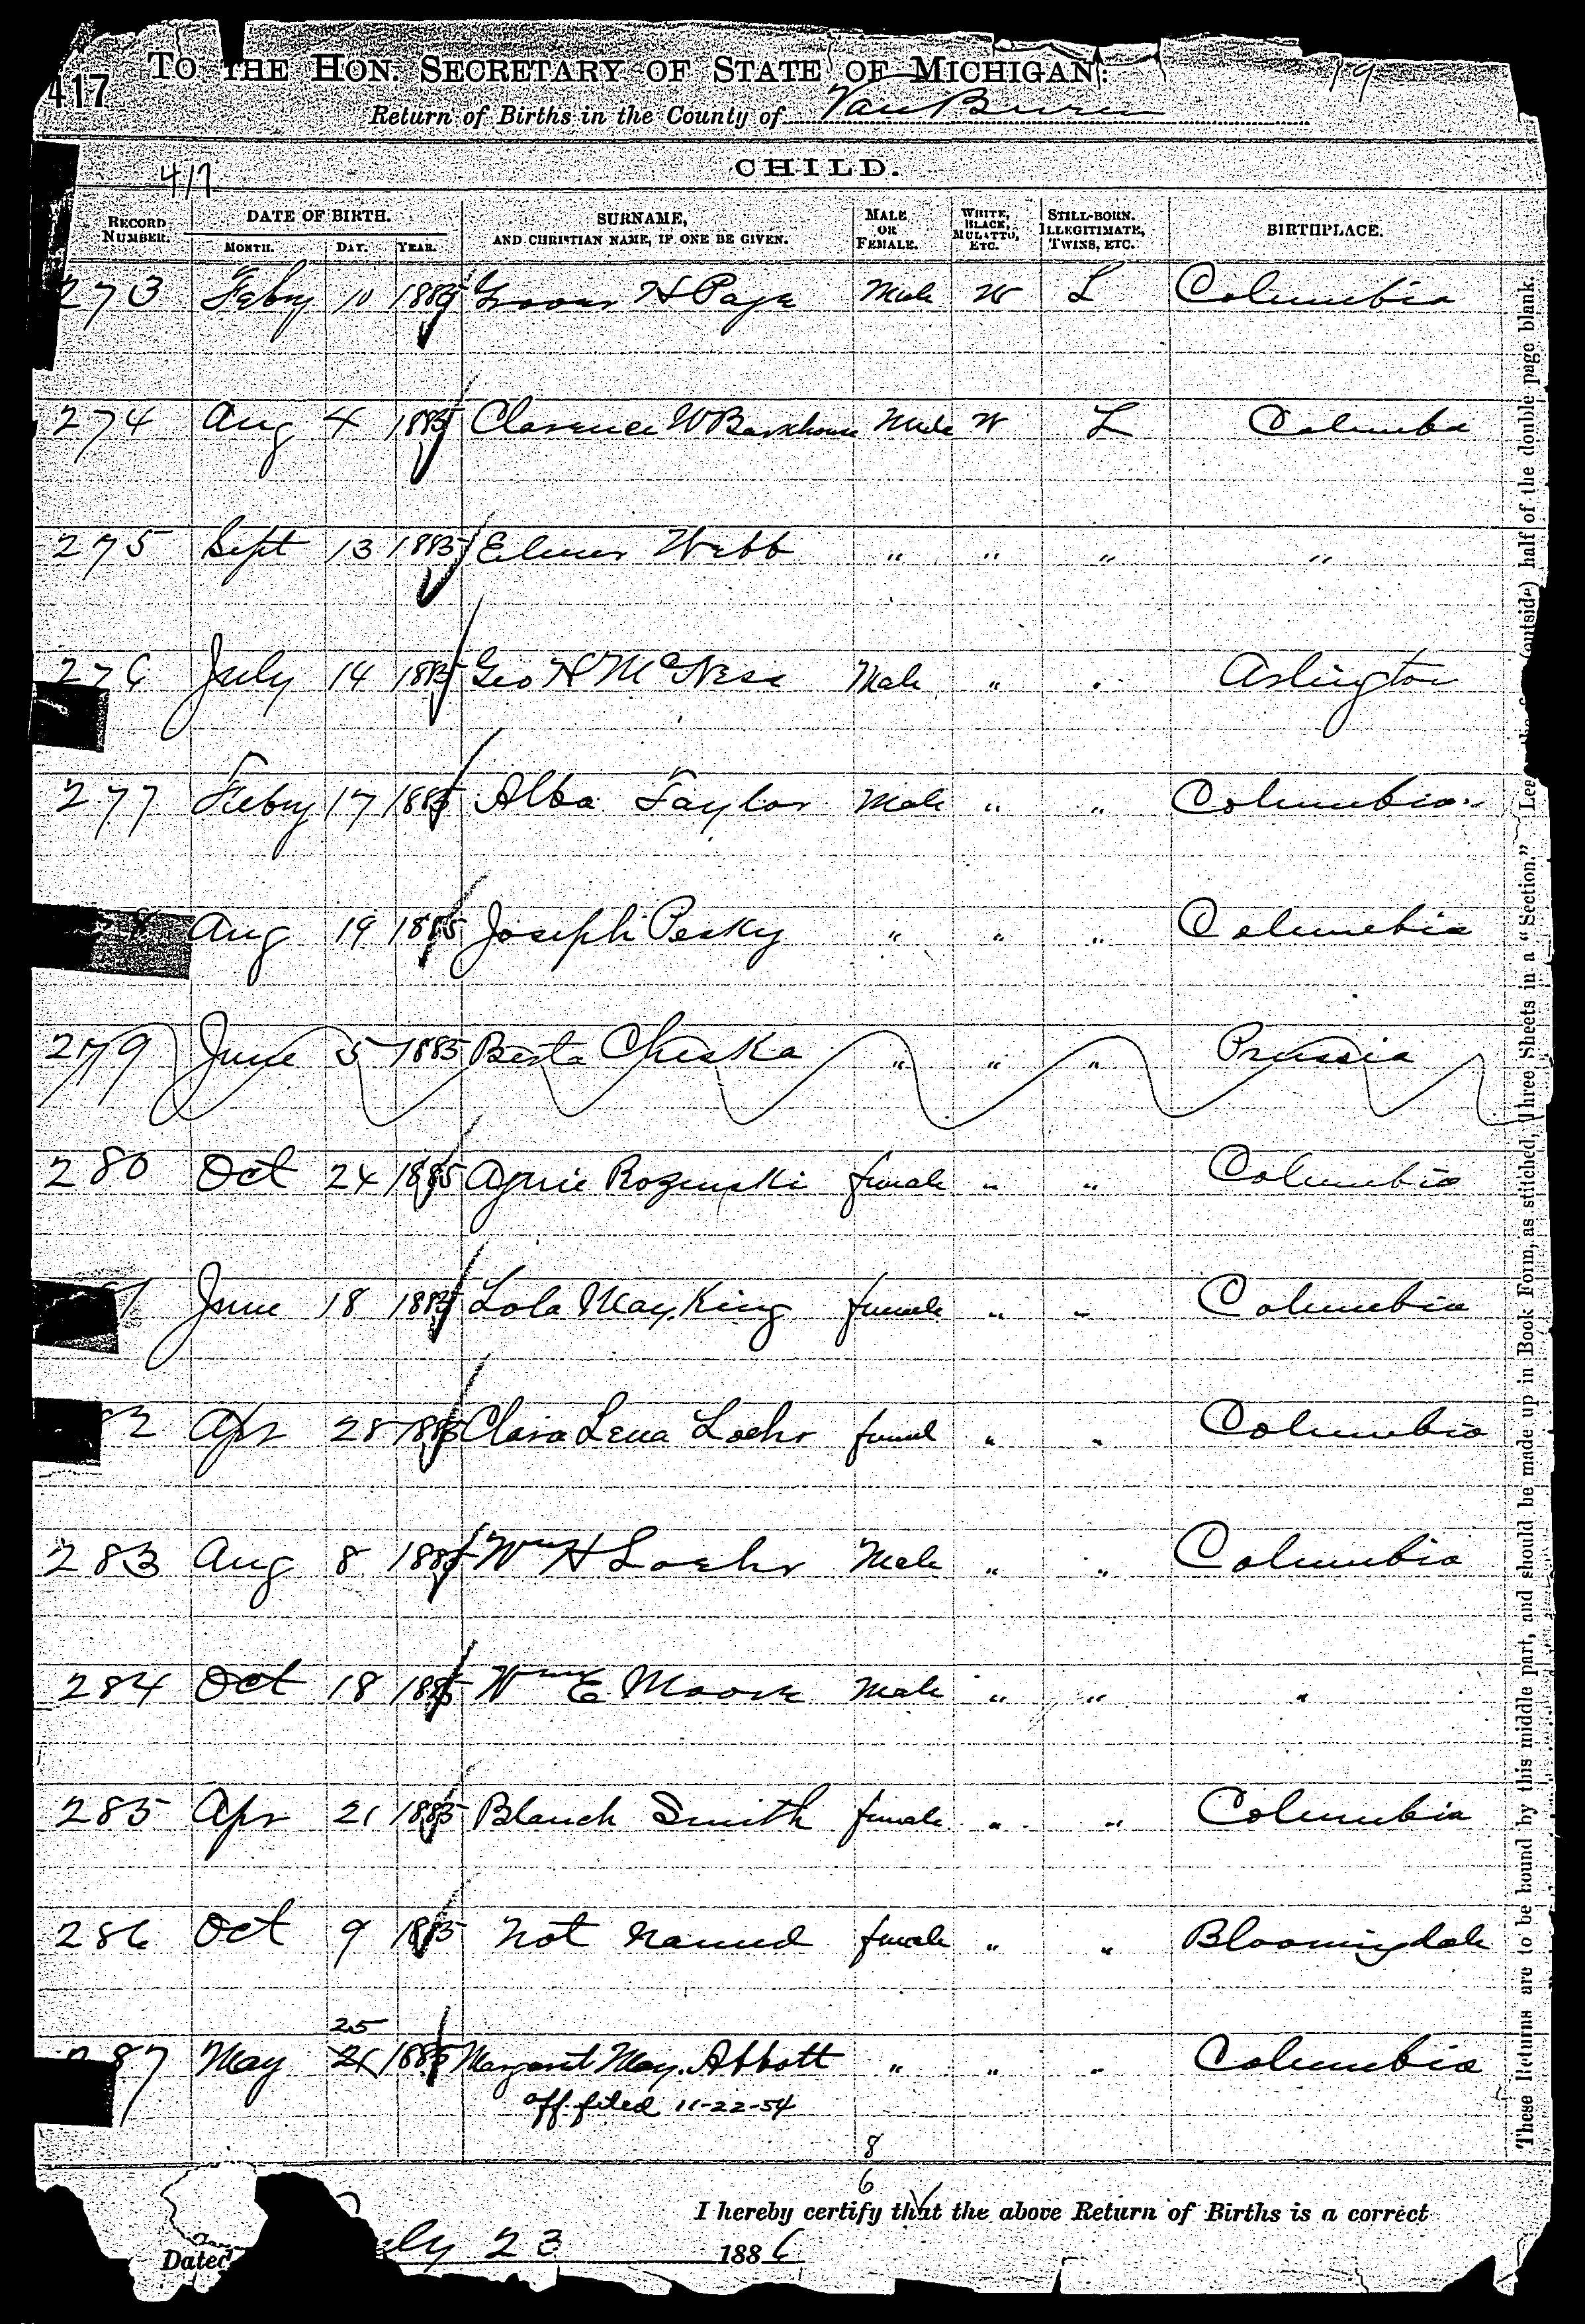 417 TO THE HON. SECRETARY OF STATE OF MICHIGAN: 79
Return of Births in the County of Van Buren
417 CHILD.
RECORD NUMBER. DATE OF BIRTH. MONTH. DAY. YEAR. SURNAME, AND CHRISTIAN NAME, IF ONE BE GIVEN. MALE OR FEMALE. WHITE, BLACK, MULATTO, ETC. STILL-BORN. ILLEGITIMATE, TWINS, ETC. BIRTHPLACE.
273 Febry 10 1885 Grover H Page Male W L Columbia
274 Aug 4 1885 Clarence W Barkhouse Male W L Columba
275 Sept 13 1885 Elmer Webb " " " "
276 July 14 1885 Geo H McNess Male " " Arlington
277 Febry 17 1885 Alba Taylor Male " " Columbia
8 Aug 19 1885 Joseph Pesky " " " Columbia
279 June 5 1885 Berta Cheska " " " Prussia
280 Oct 24 1885 Agnie Rozenski female " " Columbia
1 June 18 1885 Lola May King female " " Columbia
82 Apr 28 1885 Clara Lena Loehr femal " " Columbia
283 Aug 8 1885 Wm H Loehr Male " " Columbia
284 Oct 18 1885 Wm E Moore Male " " "
285 Apr 21 1885 Blanch Smith female " " Columbia
286 Oct 9 1885 Not Named female " " Bloomingdale
25
287 May 21 1885 Margaret May Abbott " " " Columbia
aff. filed 11-22-54
8
6
I hereby certify that the above Return of Births is a correct
Dated ly 23 1886
These Returns are to be bound by this middle part, and should be made up in Book Form, as stitched, Three Sheets in a "Section." (outside) half of the double page blank.